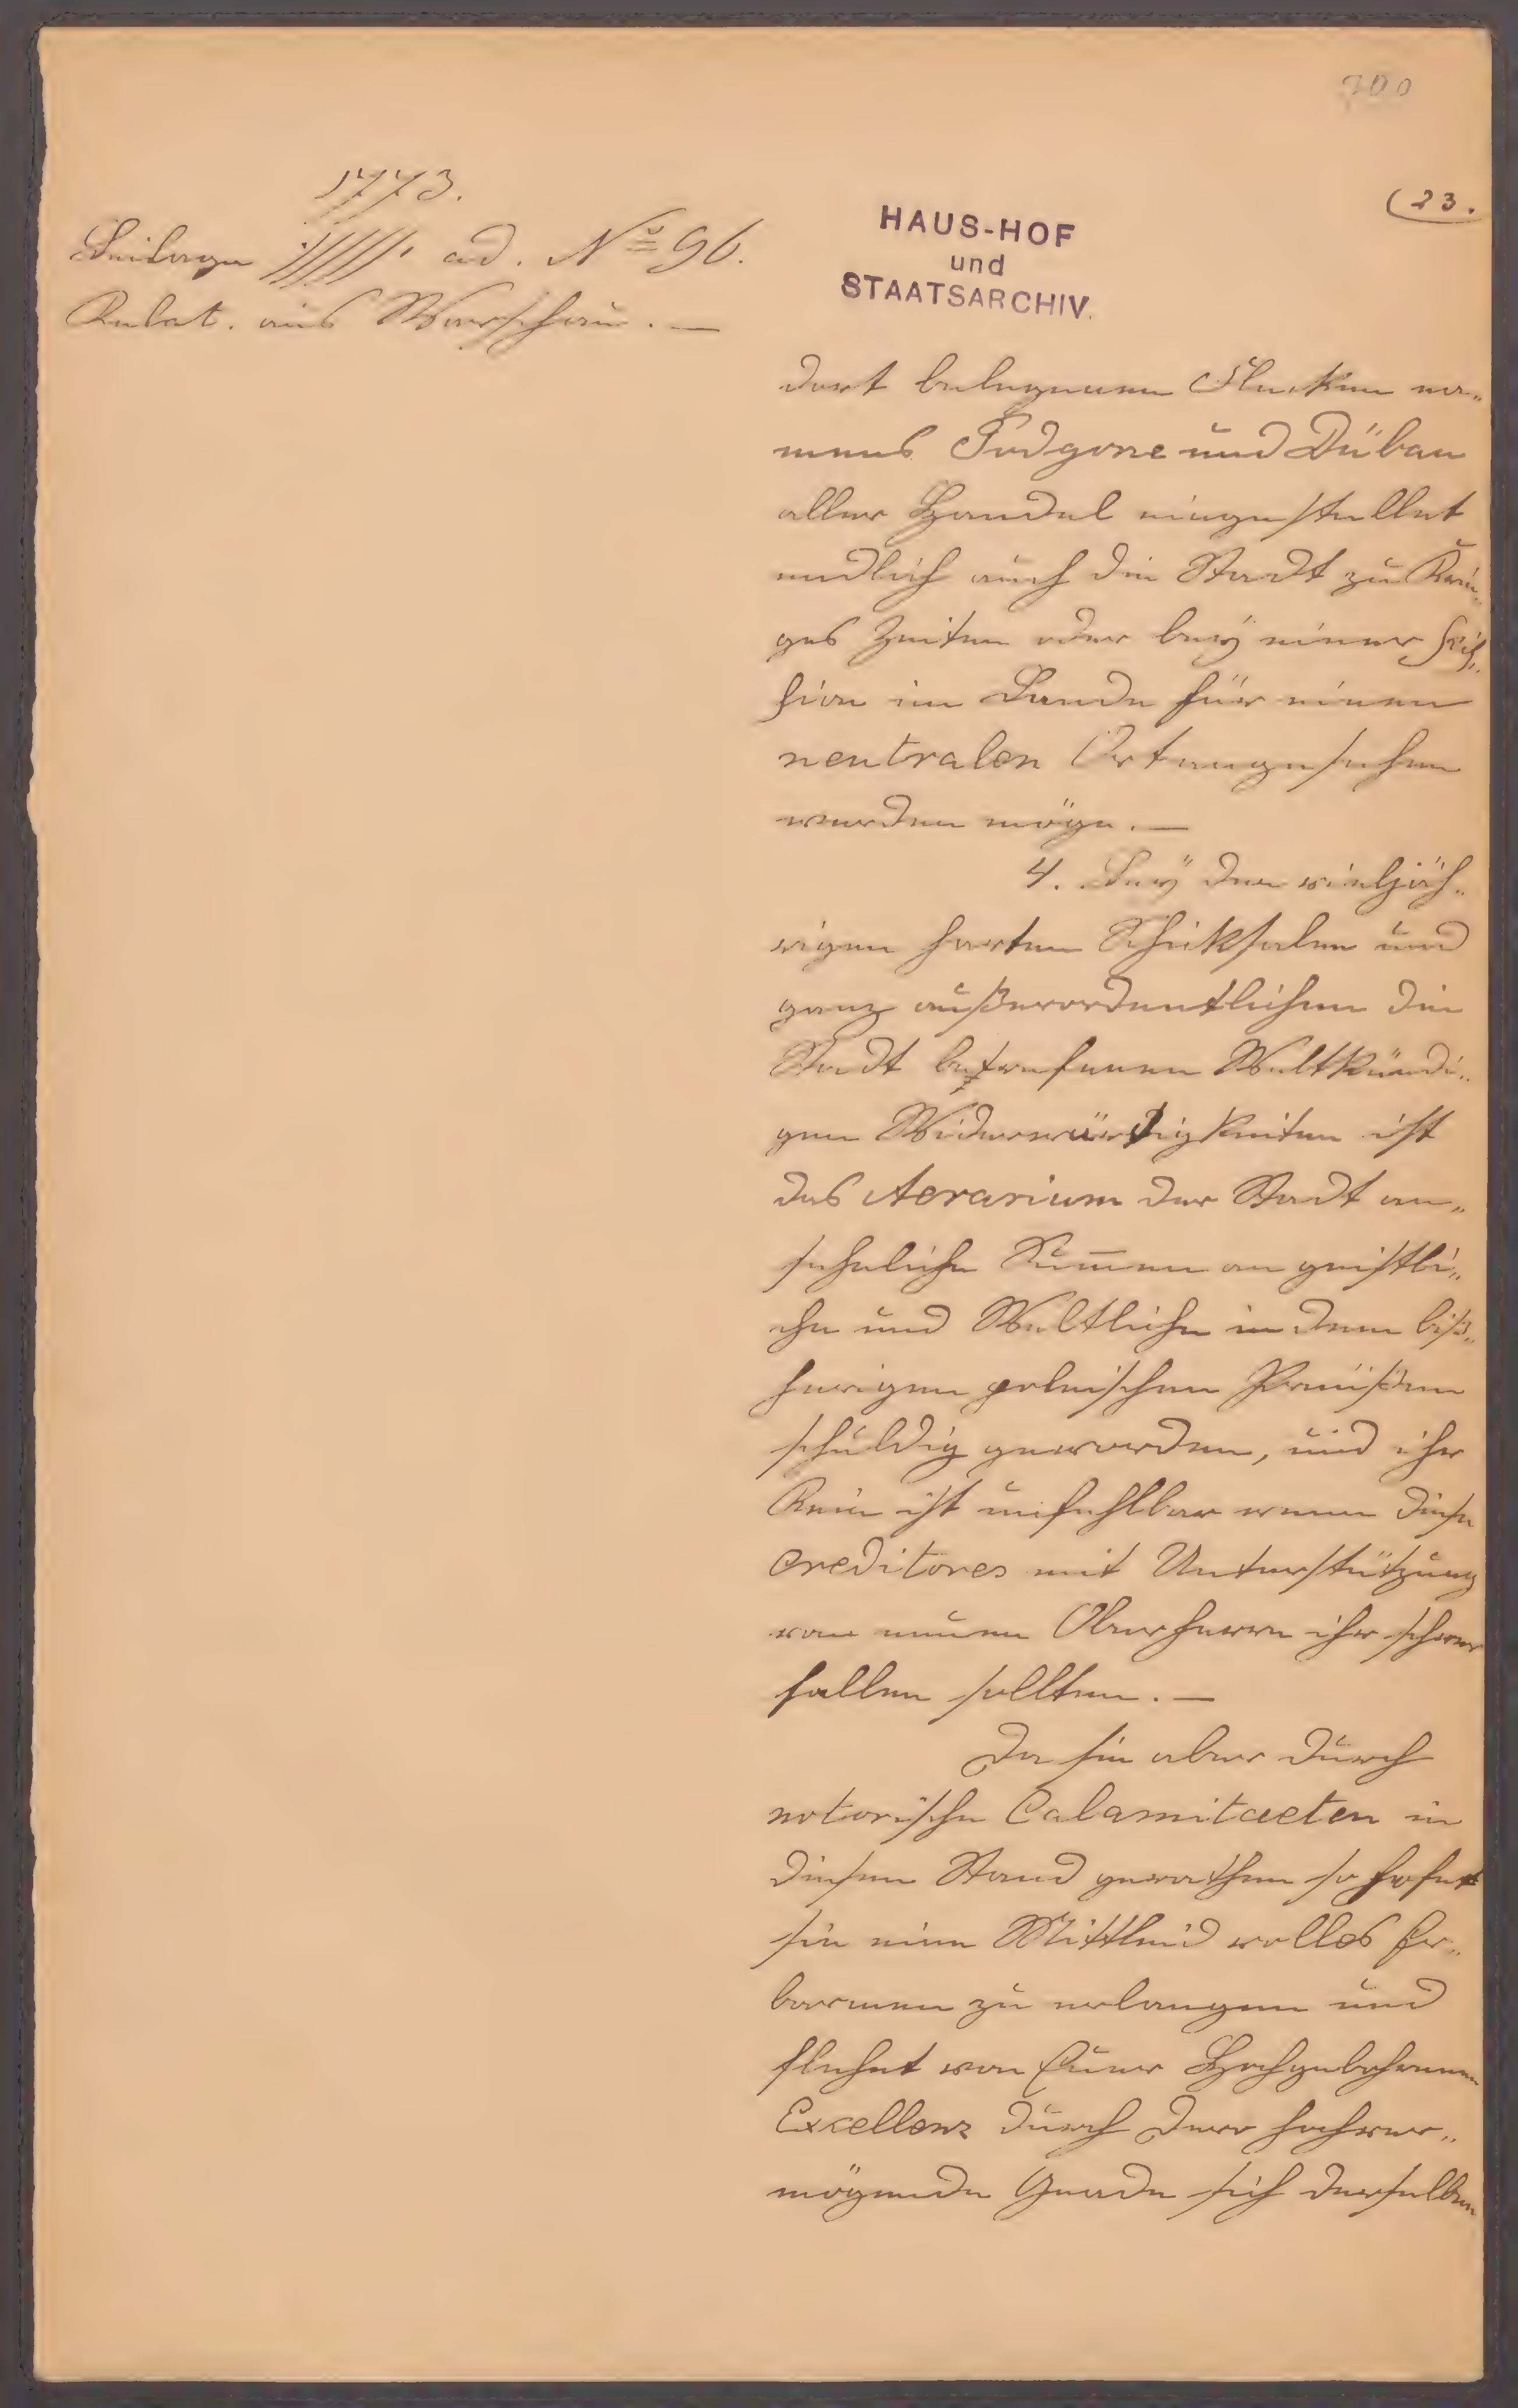 700
(23.
1773.
Beilage ad. No 96.
Relat. aus Warschau. —
HAUS-HOF
und
STAATSARCHIV.
dort belegenen Flecken na„
mens Podgorze und Dübau
aller Handel eingestellet
endlich auch die Stadt zu Krie„
ges Zeiten oder bey einer Scis„
sion im Lande für einen
neutralen Ort angesehen
werden möge. —
4. Bey den vieljäh„
rigen harten Schiksalen und
ganz außerordentlichen die
Stadt betrefenen Weltkündi„
gen Widerwärtigkeiten ist
das Aerarium der Stadt an„
sehnliche Summen an geistli„
che und Weltliche in dem biß„
herigen polnischen Preüßen
schuldig geworden, und ihr
Ruin ist unfehlbar wenn diese
Creditores mit Unterstützung
von neuen Oberherrn ihr schwer
fallen sollten. —
Da sie aber durch
notorische Calamitaeten in
diesen Stand gerathen so hofet
sie ein Mittleid volles Er„
barmen zu erlangen und
flehet von Euer Hochgebohrnen
Excellenz durch Dero hochver„
mögende Gnade sich derselben